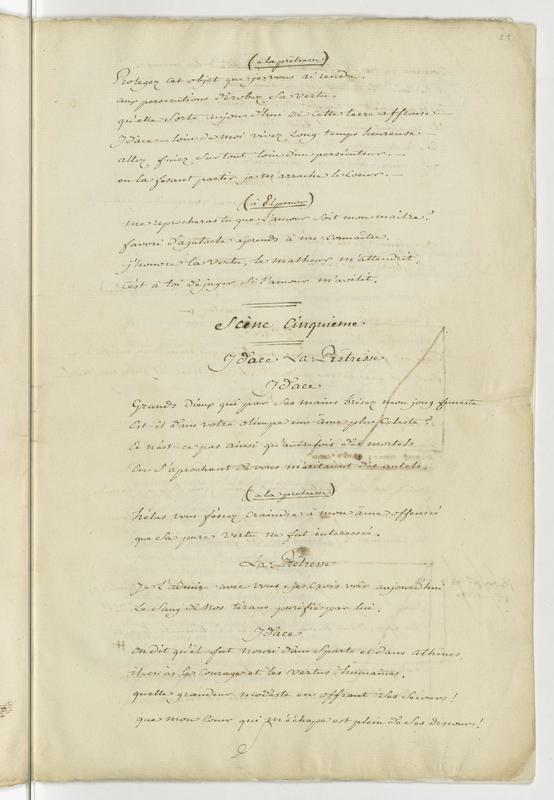 (à la prêtresse)
Protegez cet objet que je vous ai rendu.
aux persecutions dérobez sa vertu.
qu'elle sorte aujourd'hui de cette terre affreuse. —
Ydace — loin de moi vivez long temps heureuse. —
allez fuiez sur tout loin d'un persécuteur. —
en la fesant partir je m'arrache le coeur. —
(à Elpenor)
me reprocheras tu que l'amour soit mon maître?
favori d'agatocle aprends à me connaître.
j'honore la vertu, le malheur m'attendrit.
c'est à toi de juger si l'amour m'avilit.
Scène Cinquieme
Ydace La Prêtresse
Ydace
Grands dieux qui par ses mains brisez mon joug funeste
Est-il dans votre olimpe une âme plus Celeste?
Ce n'est ce pas ainsi qu'autrefois des mortels
En s'aprochant de vous méritaient des autels.
(à la prêtresse)
hélas vous fesiez craindre à mon âme offensée
que sa pure vertu ne fut interessée.
La Prêtresse
Je l'admire avec vous, je crois voir aujourd'hui
Le Sang de nos tirans purifié par lui.
Ydace
on dit qu'il fut nourri dans Sparte et dans athènes
il en a le courage et les vertus humaines.
quelle grandeur modeste en offrant ses secours!
que mon Coeur qui m'échape est plein de ses discours!